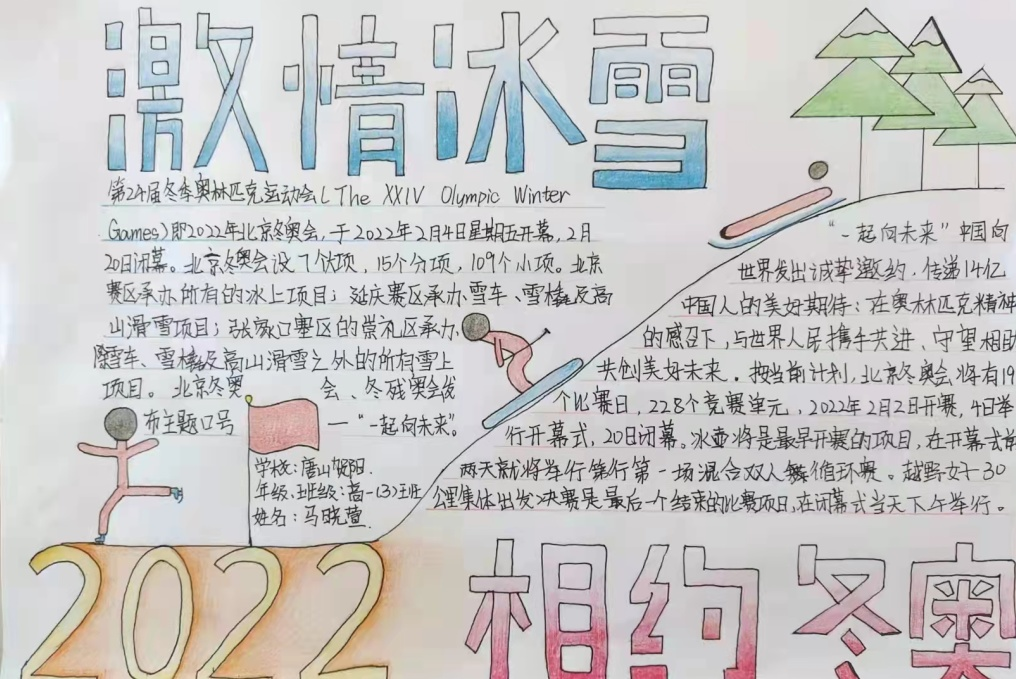 激情冰雪
第24届冬季奥林匹克运动会(The XXIV Olympic Winter
Games)即2022年北京冬奥会,于2022年2月4日星期五开幕,2月
20日闭幕。北京冬奥会设7个大项,15个分项,109个小项。北京
赛区承办所有的冰上项目;延庆赛区承办雪车、雪橇及高
山滑雪项目;张家口赛区的崇礼区承办
除雪车、雪橇及高山滑雪之外的所有雪上
项目。北京冬奥会、冬残奥会发
布主题口号——“一起向未来”。
学校:唐山
年级、班级:高一(3)班
姓名:马晓萱
“一起向未来”中国向
世界发出诚挚邀约,传递14亿
中国人的美好期待:在奥林匹克精神
的感召下,与世界人民携手共进、守望相助
共创美好未来。按当前计划,北京冬奥会将有19
个比赛日,228个竞赛单元,2022年2月2日开赛,4日举
行开幕式,20日闭幕。冰壶将是最早开赛的项目,在开幕式前
两天就将举行第一场混合双人循环赛。越野30
公里集体出发决赛是最后一个结束的比赛项目,在闭幕式当天下午举行。
2022
相约冬奥